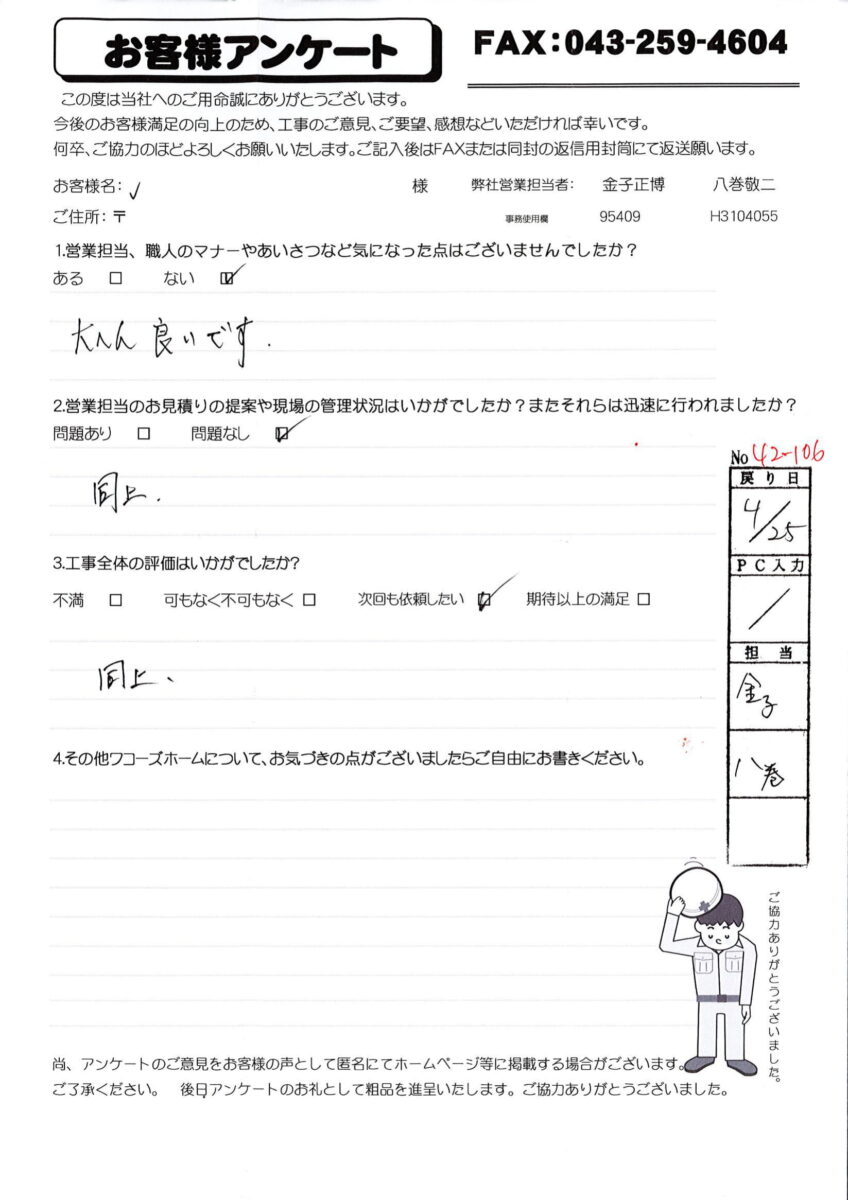 お客様アンケート
FAX:043-259-4604
この度は当社へのご用命誠にありがとうございます。
今後のお客様満足の向上のため、工事のご意見、ご要望、感想などいただければ幸いです。
何卒、ご協力のほどよろしくお願いいたします。ご記入後はFAXまたは同封の返信用封筒にて返送願います。
お客様名: 様 弊社営業担当者: 金子正博 八巻敬二
ご住所:〒 事務使用欄 95409 H3104055
1.営業担当、職人のマナーやあいさつなど気になった点はございませんでしたか?
ある □ ない ☑
大へん良いです.
2.営業担当のお見積りの提案や現場の管理状況はいかがでしたか?またそれらは迅速に行われましたか?
問題あり □ 問題なし ☑
同上.
3.工事全体の評価はいかがでしたか?
不満 □ 可もなく不可もなく □ 次回も依頼したい ☑ 期待以上の満足 □
同上、
4.その他ワコーズホームについて、お気づきの点がございましたらご自由にお書きください。
No 42-106
戻り日
4/25
PC入力
/
担当
金子
八巻
ご協力ありがとうございました。
尚、アンケートのご意見をお客様の声として匿名にてホームページ等に掲載する場合がございます。
ご了承ください。 後日アンケートのお礼として粗品を進呈いたします。ご協力ありがとうございました。